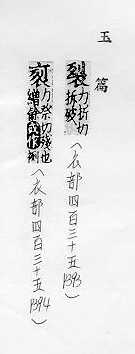 玉篇
裂 力折切
拆破
(衣部四百三十五 1393)
力祭切殘也
繒餘或作
(衣部四百三十五 1394)